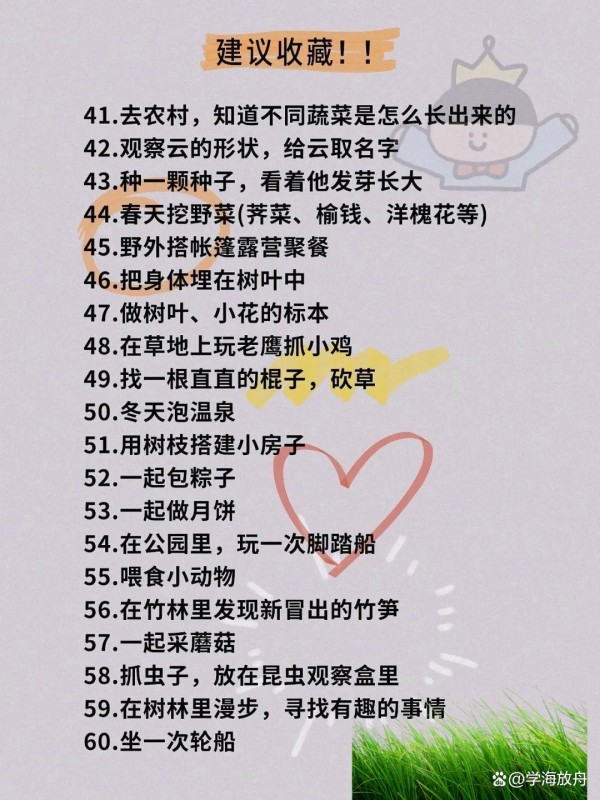 建议收藏！！
41.去农村，知道不同蔬菜是怎么长出来的
42.观察云的形状，给云取名字
43.种一颗种子，看着他发芽长大
44.春天挖野菜(荠菜、榆钱、洋槐花等)
45.野外搭帐篷露营聚餐
46.把身体埋在树叶中
47.做树叶、小花的标本
48.在草地上玩老鹰抓小鸡
49.找一根直直的棍子，砍草
50.冬天泡温泉
51.用树枝搭建小房子
52.一起包粽子
53.一起做月饼
54.在公园里，玩一次脚踏船
55.喂食小动物
56.在竹林里发现新冒出的竹笋
57.一起采蘑菇
58.抓虫子，放在昆虫观察盒里
59.在树林里漫步，寻找有趣的事情
60.坐一次轮船
@学海放舟